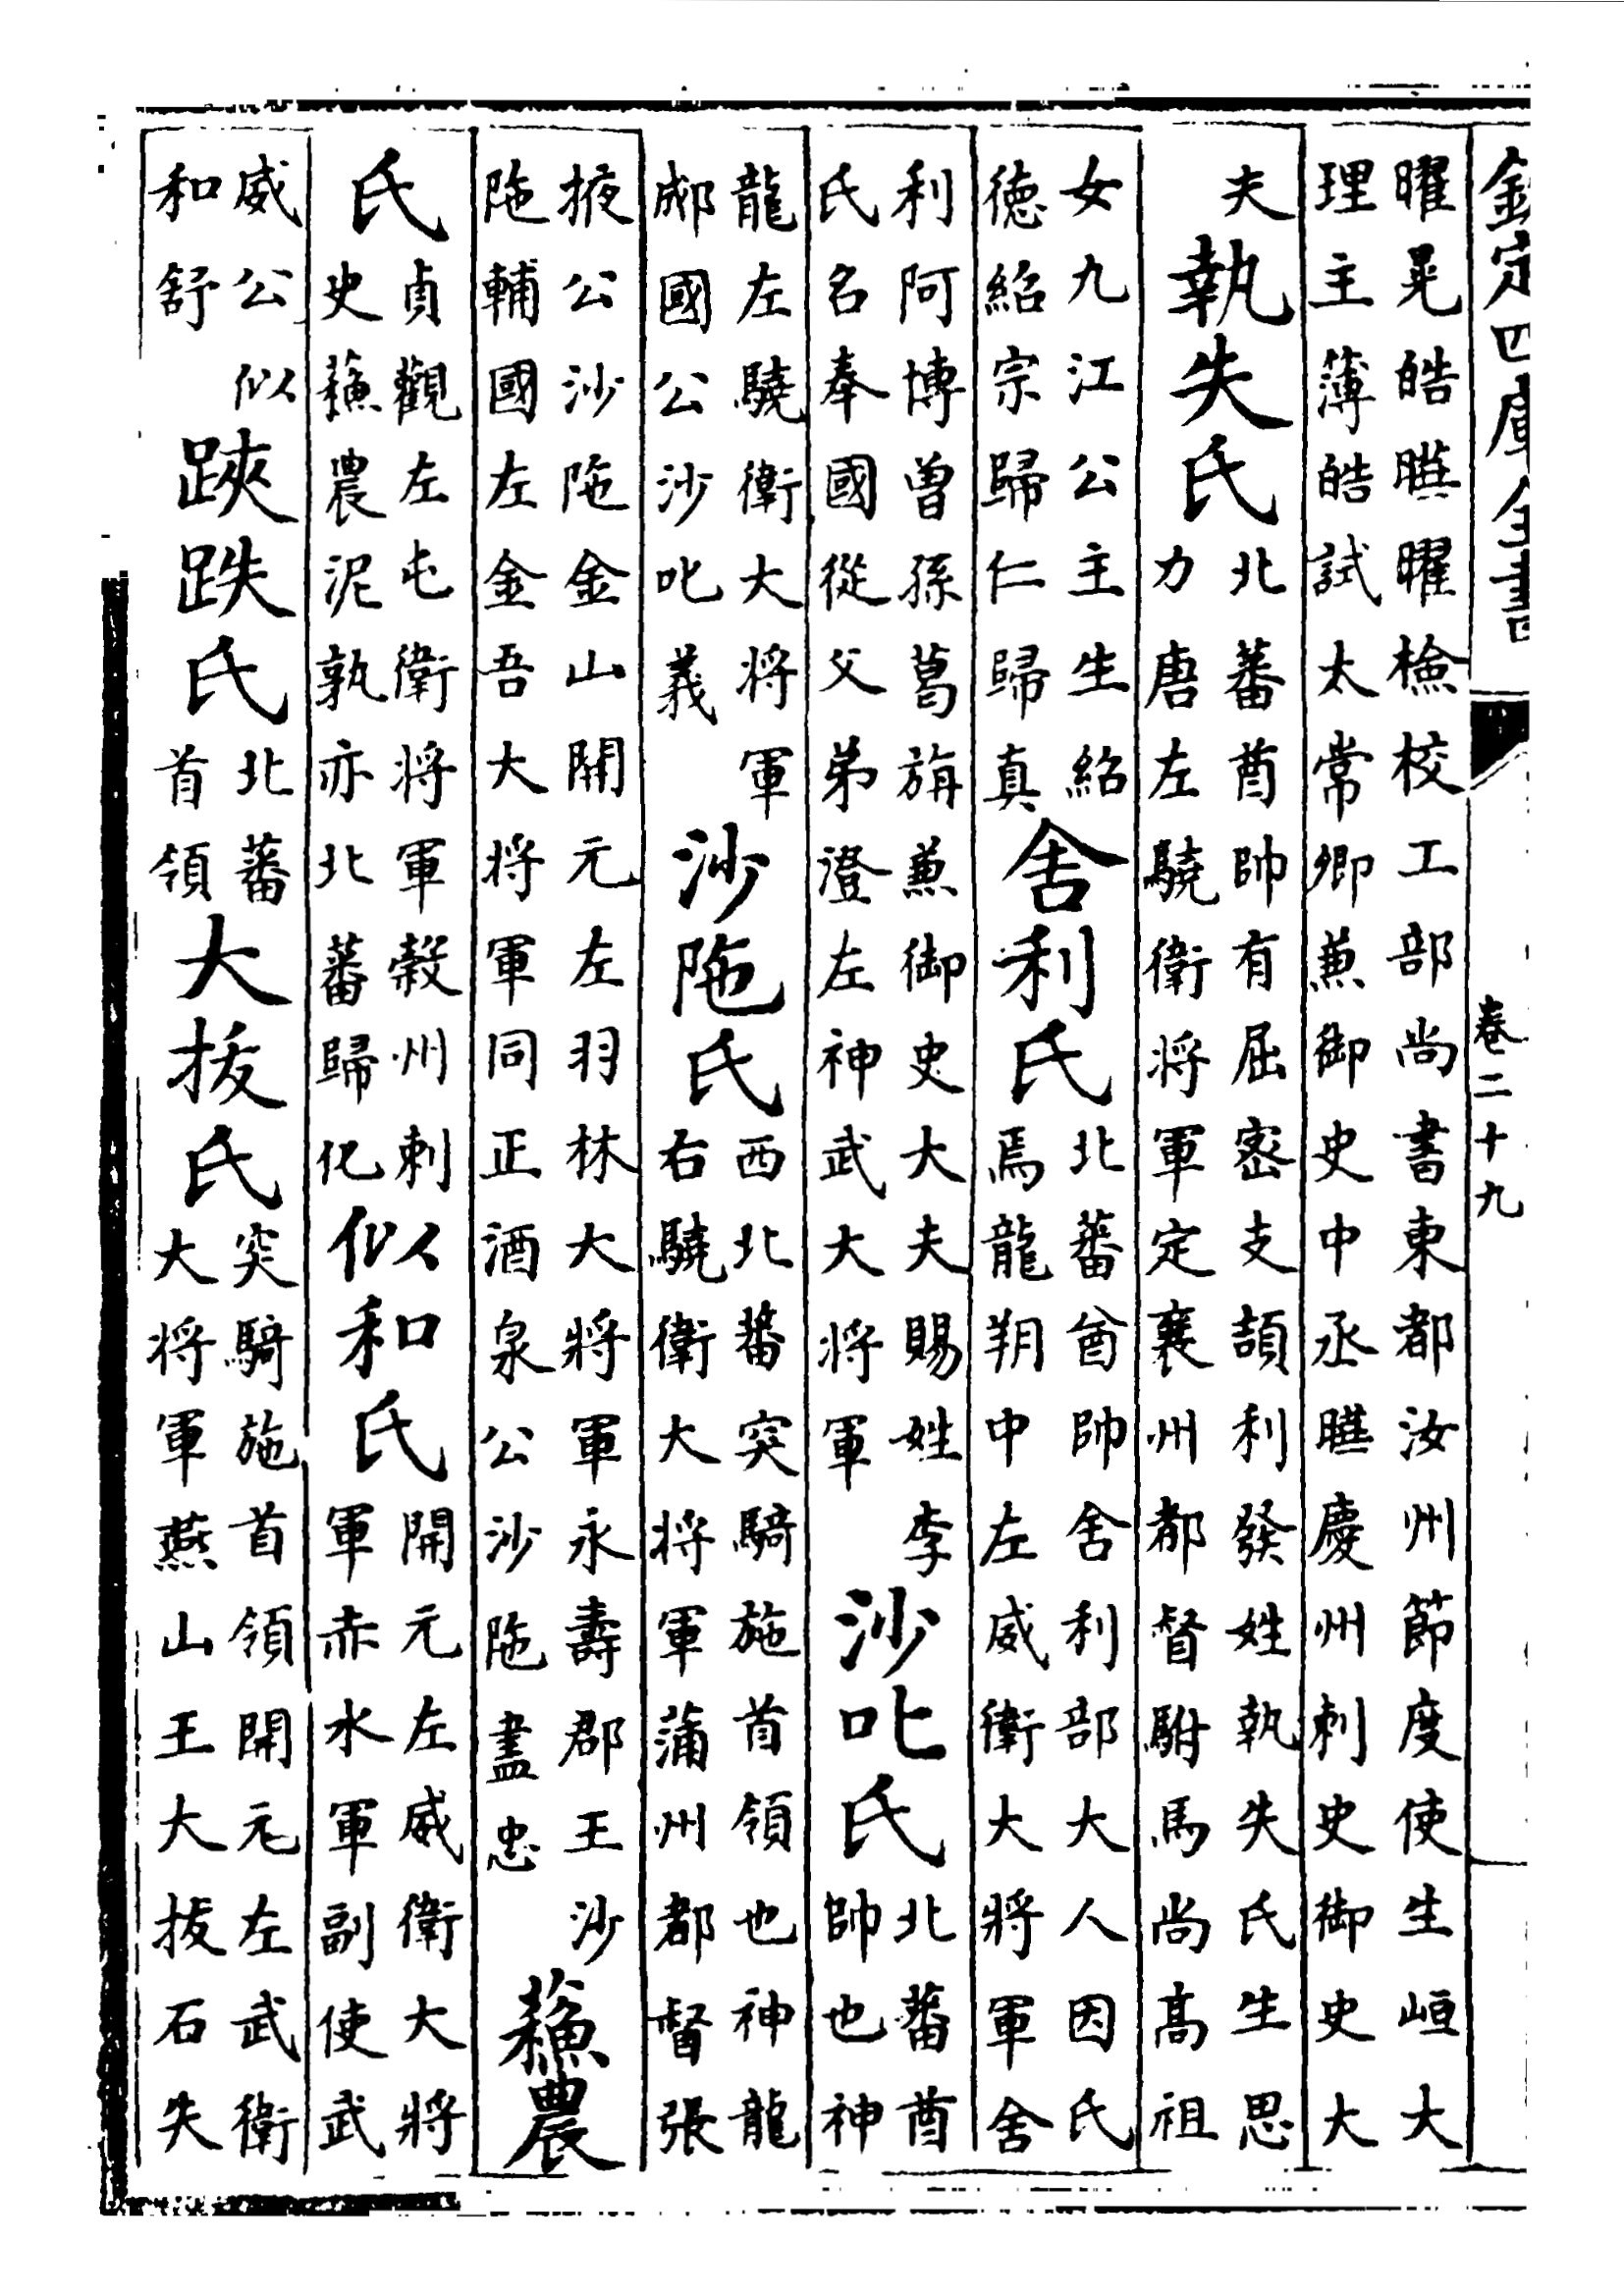 欽定四庫全書
卷二十九
曜晃皓曜檢校工部尚書東都汝州節度使生峘大
理主簿皓試太常卿兼御史中丞慶州刺史御史大
夫
執失氏
北蕃酋帥有屈密支頡利發姓執失氏生思
力唐左驍衛將軍定襄州都督駙馬尚高祖
女九江公主生紹
德紹宗歸仁歸真
舍利氏
北蕃酋帥舍利部大人因氏
焉龍朔中左威衛大將軍舍
利阿博曾孫葛旃兼御史大夫賜姓李
氏名奉國從父弟澄左神武大將軍
沙叱氏
北蕃酋
帥也神
龍左驍衛大將軍
郕國公沙叱義
沙陁氏
西北蕃突騎施首領也神龍
右驍衛大將軍蒲州都督張
掖公沙陁金山開元左羽林大將軍永壽郡王沙
陁輔國左金吾大將軍同正酒泉公沙陁盡忠
蘓農
氏
貞觀左屯衛將軍榖州刺
史蘓農泥孰亦北蕃歸化
似和氏
開元左威衛大將
軍赤水軍副使武
威公似
和舒
䟴跌氏
北蕃
首領
大拔氏
突騎施首領開元左武衛
大將軍燕山王大拔石失